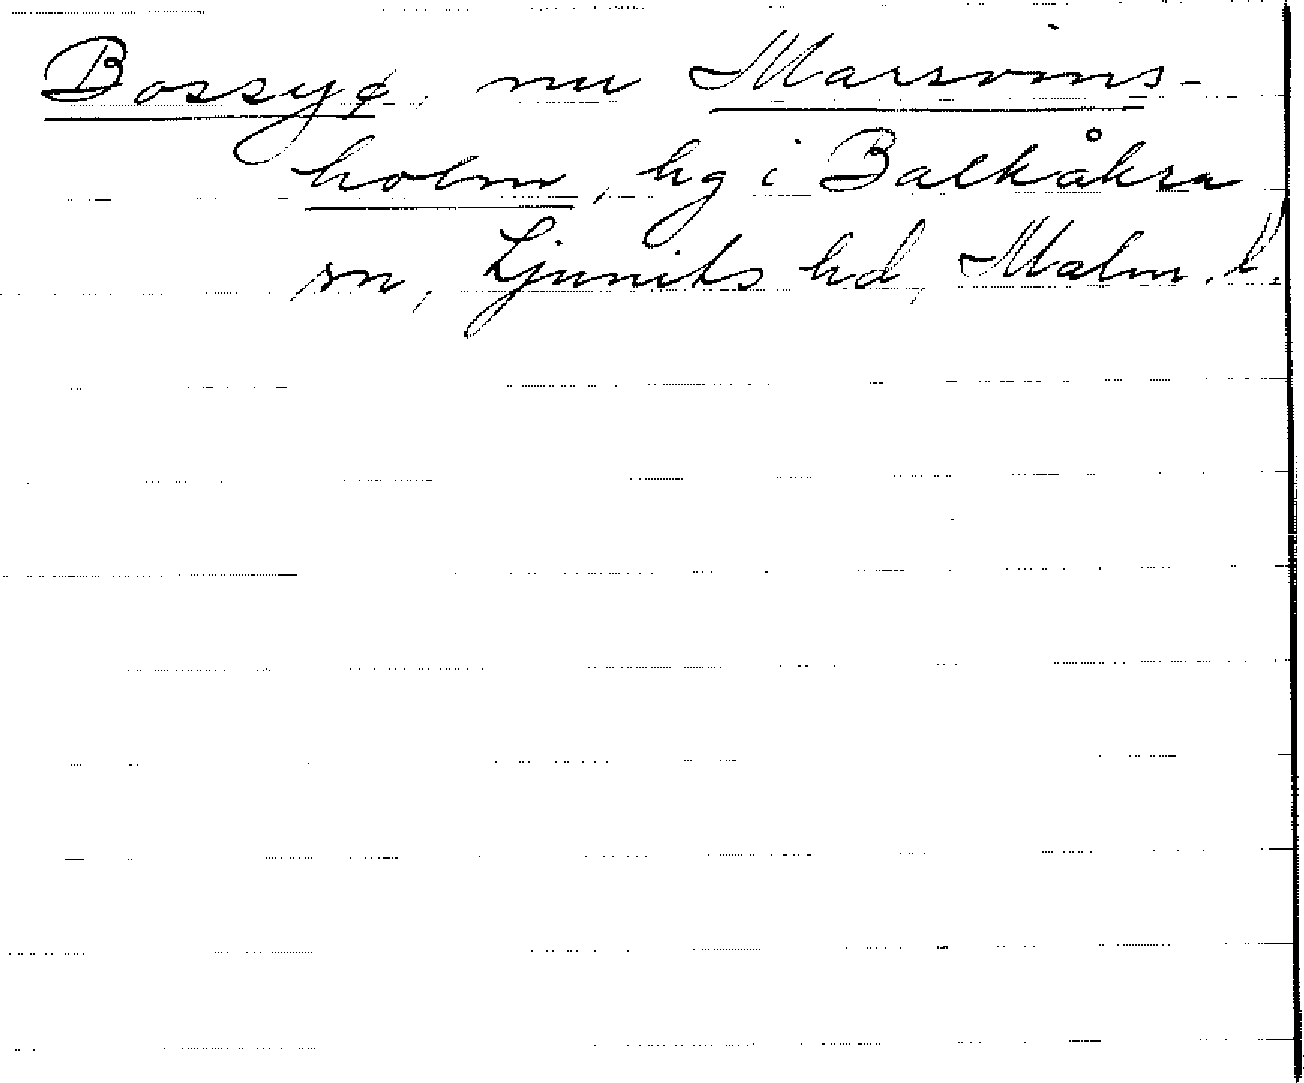 Bossyø, nu Marsvins-
holm, hg i Balkåkra
sn, Ljunits hd, Malm. l.